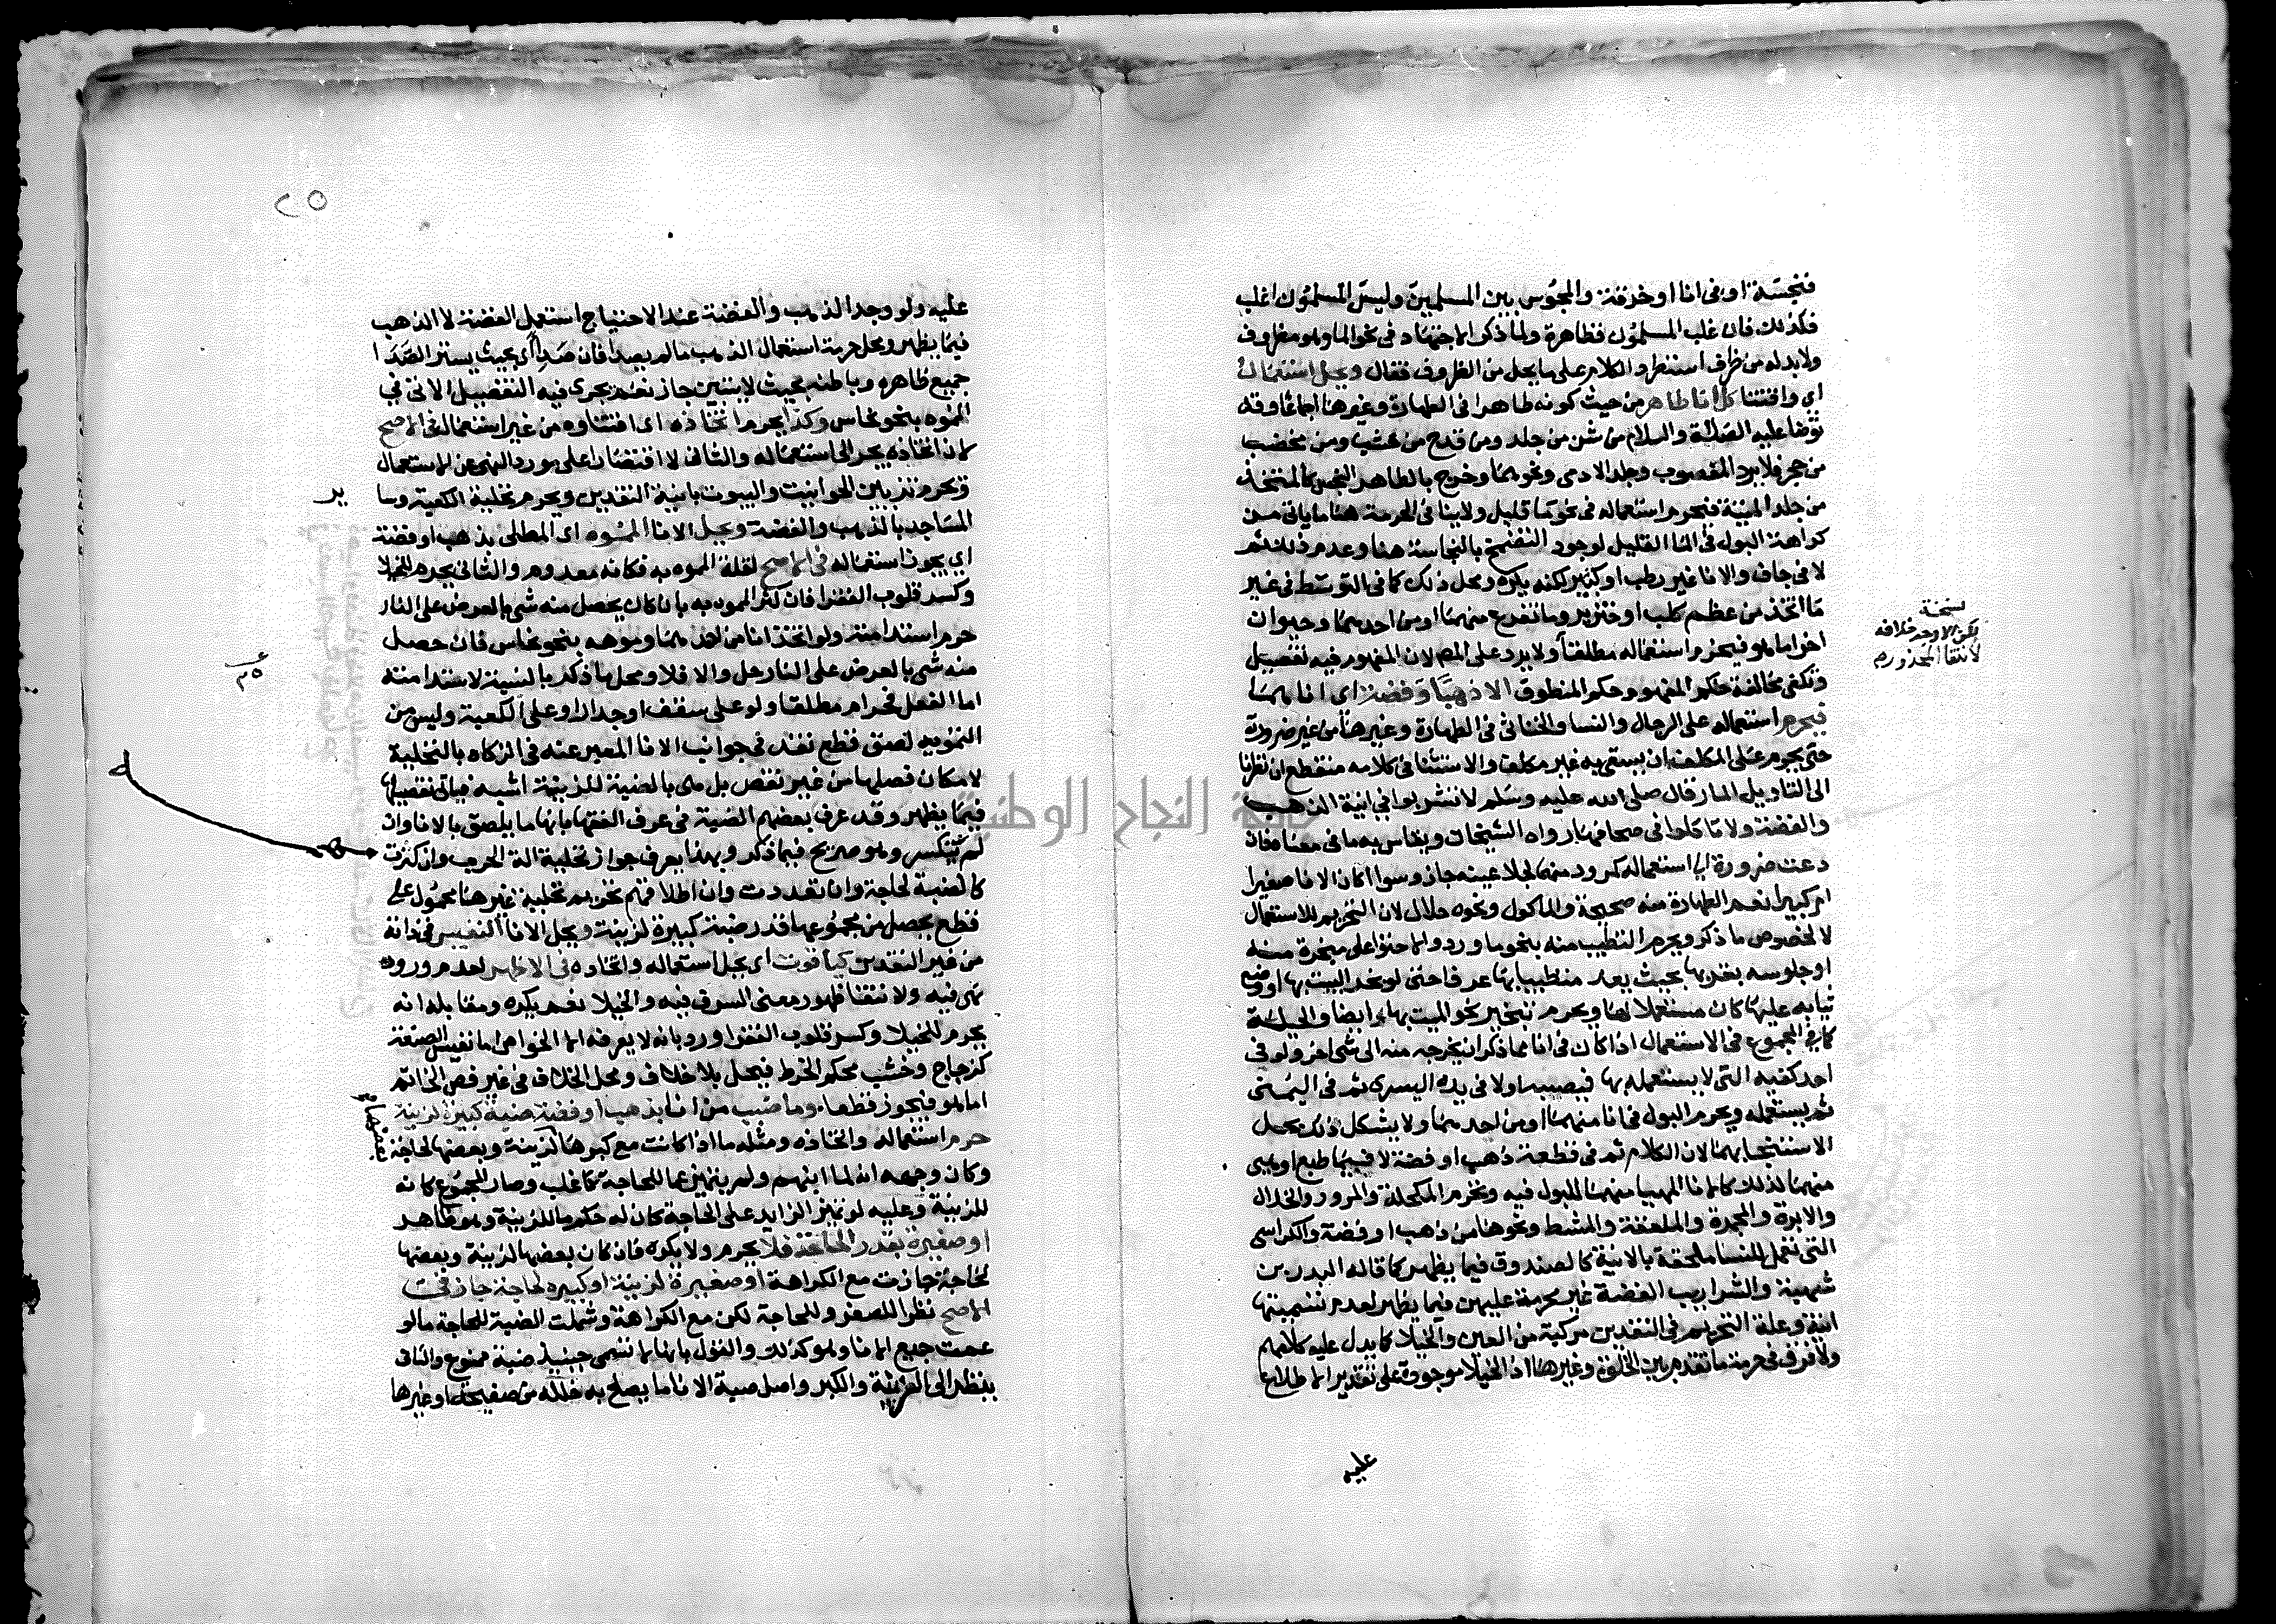 فنجسة او في انا او خرقة والمجوس بين المسلمين وليس المسلمون اغلب
فكذلك فان غلب المسلمون فطاهرة ولما ذكر الاجتهاد في نحو الما وهو مظروف
ولا بد له من ظرف استطرد الكلام على ما يحل من الظروف فقال ويحل استعمال
اي واقتنا كل انا طاهر من حيث كونه طاهرا في الطهارة وغيرها اجماعا وقد
توضا عليه الصلاة والسلام من شن من جلد ومن قدح من خشب ومن مخضب
من حجر فلا يرد المغصوب وجلد الادمي ونحوهما وخرج بالطاهر النجس كالمتخذ
من جلد الميتة فيحرم استعماله في نحو ما قليل ولا ينافي الحرمة هنا ما ياتي من
كراهة البول في الما القليل لوجود التضمخ بالنجاسة هنا وعدم ذلك ثم
لا في جاف والانا غير رطب او كثير لكنه يكره ومحل ذلك كما في التوسط في غير
ما اتخذ من عظم كلب او خنزير وما تفرع منهما او من احدهما وحيوان
اخر اما هو فيحرم استعماله مطلقا ولا يرد على المص لان المفهوم فيه تفصيل
وتكفي مخالفة حكم المفهوم حكم المنطوق الا ذهبا وفضة اي اناهما
فيحرم استعماله على الرجال والنسا والخناثى في الطهارة وغيرها من غير ضرورة
حتى يحرم على المكلف ان يسقي به غير مكلف والاستثنا في كلامه منقطع ان نظرنا
الى التاويل المار قال صلى الله عليه وسلم لا تشربوا في انية الذهب
والفضة ولا تاكلوا في صحافهما رواه الشيخان ويقاس به ما في معناه فان
دعت ضرورة الى استعماله كمرود منهما لجلا عينه جاز وسوا اكان الانا صغيرا
ام كبيرا نعم الطهارة منه صحيحة والماكول ونحوه حلال لان التحريم للاستعمال
لا لخصوص ما ذكر ويحرم التطيب منه بنحو ما ورد والاحتوا على مبخرة منه
او جلوسه بقربها بحيث يعد متطيبا بها عرفا حتى لو بخر البيت بها او وضع
ثيابه عليها كان مستعملا لها ويحرم تبخير نحو الميت بها ايضا والحيلة
كما في المجموع في الاستعمال اذا كان في انا مما ذكر ان يخرجه منه الى شي اخر ولو في
احد كفيه التي لا يستعمله بها فيصبه اولا في يده اليسرى ثم في اليمنى
ثم يستعمله ويحرم البول في انا منهما او من احدهما ولا يشكل ذلك بحل
الاستنجا بهما لان الكلام ثم في قطعة ذهب او فضة لا فيما طبع او هيى
منهما لذلك كالانا المهيا منهما للبول فيه ويحرم المكحلة والمرود والخلال
والابرة والمجمرة والملعقة والمشط ونحوها من ذهب او فضة والكراسي
التي تعمل للنسا ملحقة بالانية كالصندوق فيما يظهر كما قاله البدر بن
شهبة والشراريب الفضة غير محرمة عليهن فيما يظهر لعدم تسميتها
انية وعلة التحريم في النقدين مركبة من العين والخيلا كما يدل عليه كلامهم
ولا فرق في حرمة ما تقدم بين الخلوة وغيرها اذ الخيلا موجودة على تقدير الاطلاع
عليه
نسخة
لكن الاوجه خلافه
لانتقا المحذور
٢٥
عليه ولو وجد الذهب والفضة عند الاحتياج استعمل الفضة لا الذهب
فيما يظهر ومحل حرمة استعمال الذهب ما لم يصدا فان صدا اي بحيث يستر الصدا
جميع ظاهره وباطنه بحيث لا يبين جاز نعم يجري فيه التفصيل الاتي في
المموه بنحو نحاس وكذا يحرم اتخاذه اي اقتناوه من غير استعمال في الاصح
لان اتخاذه يجر الى استعماله والثاني لا اقتصارا على مورد النهي عن الاستعمال
ويحرم تزيين الحوانيت والبيوت بانية النقدين ويحرم تحلية الكعبة وسا
ير
المساجد بالذهب والفضة ويحل الانا المموه اي المطلى بذهب او فضة
اي يجوز استعماله في الاصح لقلة المموه به فكانه معدوم والثاني يحرم للخيلا
وكسر قلوب الفقرا فان كثر المموه به بان كان يحصل منه شي بالعرض على النار
حرم استدامته ولو اتخذ انا من احدهما وموهه بنحو نحاس فان حصل
منه شي بالعرض على النار حل والا فلا ومحل ما ذكر بالنسبة لاستدامته
اما الفعل فحرام مطلقا ولو على سقف او جدار او على الكعبة وليس من
التمويه لصق قطع نقد في جوانب الانا المعبر عنه في الزكاة بالتحلية
لامكان فصلها من غير نقص بل هي بالضبة للزينة اشبه فياتي تفصيلها
فيما يظهر وقد عرف بعضهم الضبة في عرف الفقها بانها ما يلصق بالانا وان
لم ينكسر وهو صريح فيما ذكر وبهذا يعرف جواز تحلية الة الحرب وان كثرت
كالضبة لحاجة وان تعددت وان اطلاقهم تحريم تحلية غيرها محمول على
قطع يحصل من مجموعها قدر ضبة كبيرة لزينة ويحل الانا النفيس في ذاته
من غير النقدين كياقوت اي يحل استعماله واتخاذه في الاظهر لعدم ورود
نهي فيه ولانتفا ظهور معنى السرف فيه والخيلا نعم يكره ومقابله انه
يحرم للخيلا وكسر قلوب الفقرا ورد بانه لا يعرفه الا الخواص اما نفيس الصنعة
كزجاج وخشب محكم الخرط فيحل بلا خلاف ومحل الخلاف في غير فص الخاتم
اما هو فيجوز قطعا. وما ضبب من انا بذهب او فضة ضبة كبيرة لزينة
حرم استعماله واتخاذه ومثله ما اذا كانت مع كبرها لزينة وبعضها لحاجة
وكان وجهه انه لما انبهم ولم يتميز عما للحاجة كما غلب وصار المجموع كانه
للزينة وعليه لو تميز الزايد على الحاجة كان له حكم ما للزينة وهو ظاهر
او صغيرة بقدر الحاجة فلا يحرم ولا يكره فان كان بعضها لزينة وبعضها
لحاجة جازت مع الكراهة او صغيرة لزينة او كبيرة لحاجة جاز في
الاصح نظرا للصغر وللحاجة لكن مع الكراهة وشملت الضبة للحاجة ما لو
عمت جميع الانا وهو كذلك والقول بانها لا تسمى حينيذ ضبة ممنوع والثاني
ينظر الى الزينة والكبر واصل ضبة الانا ما يصلح به خلله من صفيحة او غيرها
جامعة النجاح الوطنية